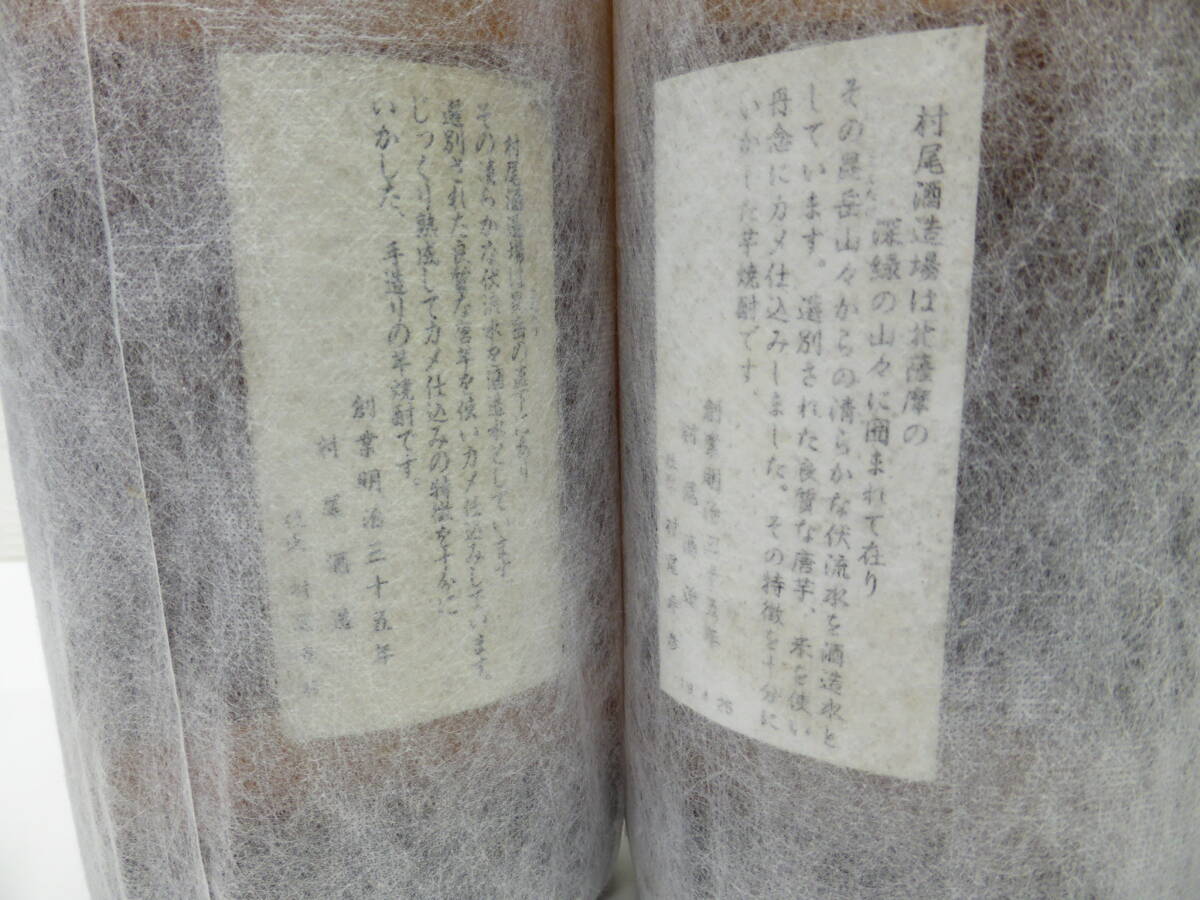 村尾酒造場は北薩摩の
深緑の山々に囲まれて在り
その昆岳山々からの清らかな伏流水を酒造水と
しています。選別された良質な唐芋、米を使い
丹念にカメ仕込みしました。その特徴を十分に
いかした芋焼酎です。
創業明治三十五年
村尾酒造
19.4.25
村尾酒造場は
の直下にあり
その清らかな伏流水を酒造水としています
選別された良質な唐芋を使いカメ仕込みしています。
じっくり熟成してカメ仕込みの特徴を十分に
いかした、手造りの芋焼酎です。
創業明治三十五年
村尾酒造